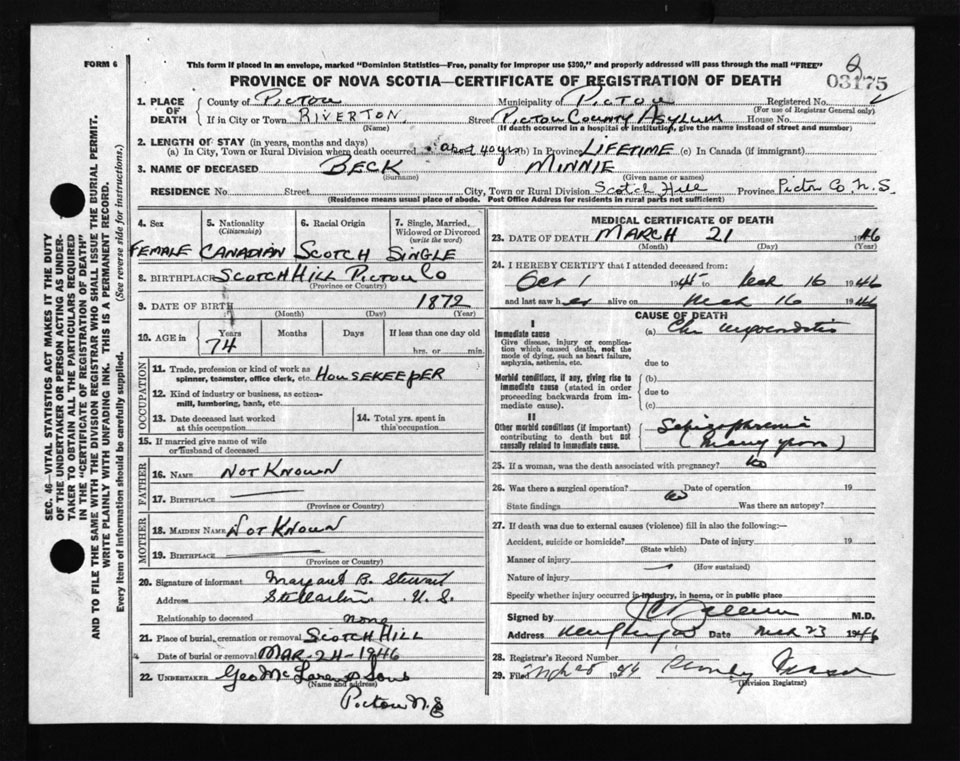 FORM 6
This form if placed in an envelope, marked "Dominion Statistics—Free, penalty for improper use $300," and properly addressed will pass through the mail "FREE"
PROVINCE OF NOVA SCOTIA—CERTIFICATE OF REGISTRATION OF DEATH
03175
1. PLACE OF DEATH
County of PICTOU Municipality of PICTOU Registered No.
(For use of Registrar General only)
If in City or Town RIVERTON Street PICTOU COUNTY ASYLUM House No.
(Name) (If death occurred in a hospital or institution, give the name instead of street and number)
2. LENGTH OF STAY (in years, months and days)
(a) In City, Town or Rural Division where death occurred about 40 yrs (b) In Province LIFETIME (c) In Canada (if immigrant)
3. NAME OF DECEASED BECK MINNIE
(Surname) (Given name or names)
RESIDENCE No. Street City, Town or Rural Division Scotch Hill Province Pictou Co N.S.
(Residence means usual place of abode. Post Office Address for residents in rural parts not sufficient)
4. Sex 5. Nationality (Citizenship) 6. Racial Origin 7. Single, Married, Widowed or Divorced (write the word)
FEMALE CANADIAN SCOTCH SINGLE
8. BIRTHPLACE SCOTCH HILL PICTOU CO
(Province or Country)
9. DATE OF BIRTH 1872
(Month) (Day) (Year)
10. AGE in Years Months Days If less than one day old
74 hrs. or min.
OCCUPATION
11. Trade, profession or kind of work as spinner, teamster, office clerk, etc. HOUSEKEEPER
12. Kind of industry or business, as cotton-mill, lumbering, bank, etc.
13. Date deceased last worked at this occupation
14. Total yrs. spent in this occupation
15. If married give name of wife or husband of deceased
FATHER
16. NAME NOT KNOWN
17. BIRTHPLACE
(Province or Country)
MOTHER
18. MAIDEN NAME NOT KNOWN
19. BIRTHPLACE
(Province or Country)
20. Signature of informant Margaret B. Stewart
Address Stellarton N.S.
Relationship to deceased none
21. Place of burial, cremation or removal SCOTCH HILL
Date of burial or removal MAR-24-1946
22. UNDERTAKER Geo McLaren & Sons
(Name and Address)
Pictou N.S
MEDICAL CERTIFICATE OF DEATH
23. DATE OF DEATH MARCH 21 1946
(Month) (Day) (Year)
24. I HEREBY CERTIFY that I attended deceased from:
Oct 1 1945 to Mch 16 1946
and last saw her alive on Mch 16 1946
CAUSE OF DEATH
I
Immediate cause
Give disease, injury or complication which caused death, not the mode of dying, such as heart failure, asphyxia, asthenia, etc.
(a) Chr myocarditis
due to
Morbid conditions, if any, giving rise to immediate cause (stated in order proceeding backwards from immediate cause).
(b)
due to
(c)
II
Other morbid conditions (if important) contributing to death but not causally related to immediate cause.
Schizophrenia
(many years)
25. If a woman, was the death associated with pregnancy? No
26. Was there a surgical operation? no Date of operation 19
State findings Was there an autopsy?
27. If death was due to external causes (violence) fill in also the following:—
Accident, suicide or homicide? Date of injury 19
(State which)
Manner of injury
(How sustained)
Nature of injury
Specify whether injury occurred in industry, in home, or in public place
Signed by M.D.
Address New Glasgow Date Mch 23 1946
28. Registrar's Record Number
29. Filed Mch 28 1946
(Division Registrar)
SEC. 46—VITAL STATISTICS ACT MAKES IT THE DUTY
OF THE UNDERTAKER OR PERSON ACTING AS UNDER-
TAKER TO OBTAIN ALL THE PARTICULARS REQUIRED
IN THE "CERTIFICATE OF REGISTRATION OF DEATH"
AND TO FILE THE SAME WITH THE DIVISION REGISTRAR WHO SHALL ISSUE THE BURIAL PERMIT.
WRITE PLAINLY WITH UNFADING INK. THIS IS A PERMANENT RECORD.
Every item of information should be carefully supplied. (See reverse side for instructions.)